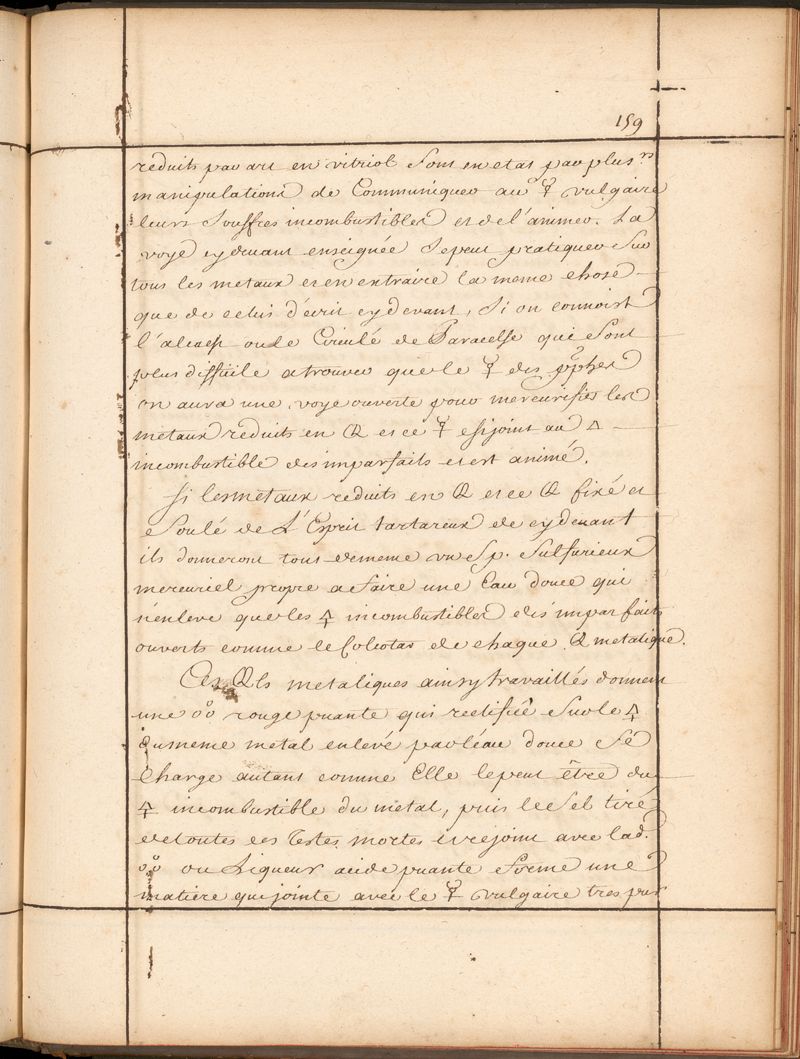 159
reduits par art en vitriol sont en etat par plus.rs
manipulations de Communiquer au ☿ vulgaire
leurs souffres incombustibles et de l'animer. La
voye cydevant enseignée se peut pratiquer sur
tous les metaux et en extraire la meme chose
que de celui d'écrit cydevant, si on connoist
l'alcaest ou le Circulé de Paracelse qui sont
plus difficile a trouver que le ☿ des pphes
on aura une voye ouverte pour mercurifier les
metaux reduits en 🜖 et ce ☿ est joint au 🜂
incombustible des imparfaits et est animé.
Si les metaux reduits en 🜖 et ce 🜖 fixé et
soulé de L'Esprit tartareux de cydevant
ils donneront tout de meme un sp. sulfurieux
mercuriel propre a faire une Eau douce qui
n'enleve que les 🜍 incombustibles des imparfaits
ouverts comme le Colcotar de chaque 🜖 metalique.
Ces 🜖ls metaliques ainsy travaillés donnent
une o°o rouge puante qui rectifiée sur le 🜍
du meme metal enlevé par l'eau douce se
Charge autant comme Elle le peut être du
🜍 incombustible du metal, puis le sel tiré
de toutes ces Testes mortes et rejoint avec lad.
o°o ou Liqueur acide puante forme une
matiere qui jointe avec le ☿ vulgaire tres pur